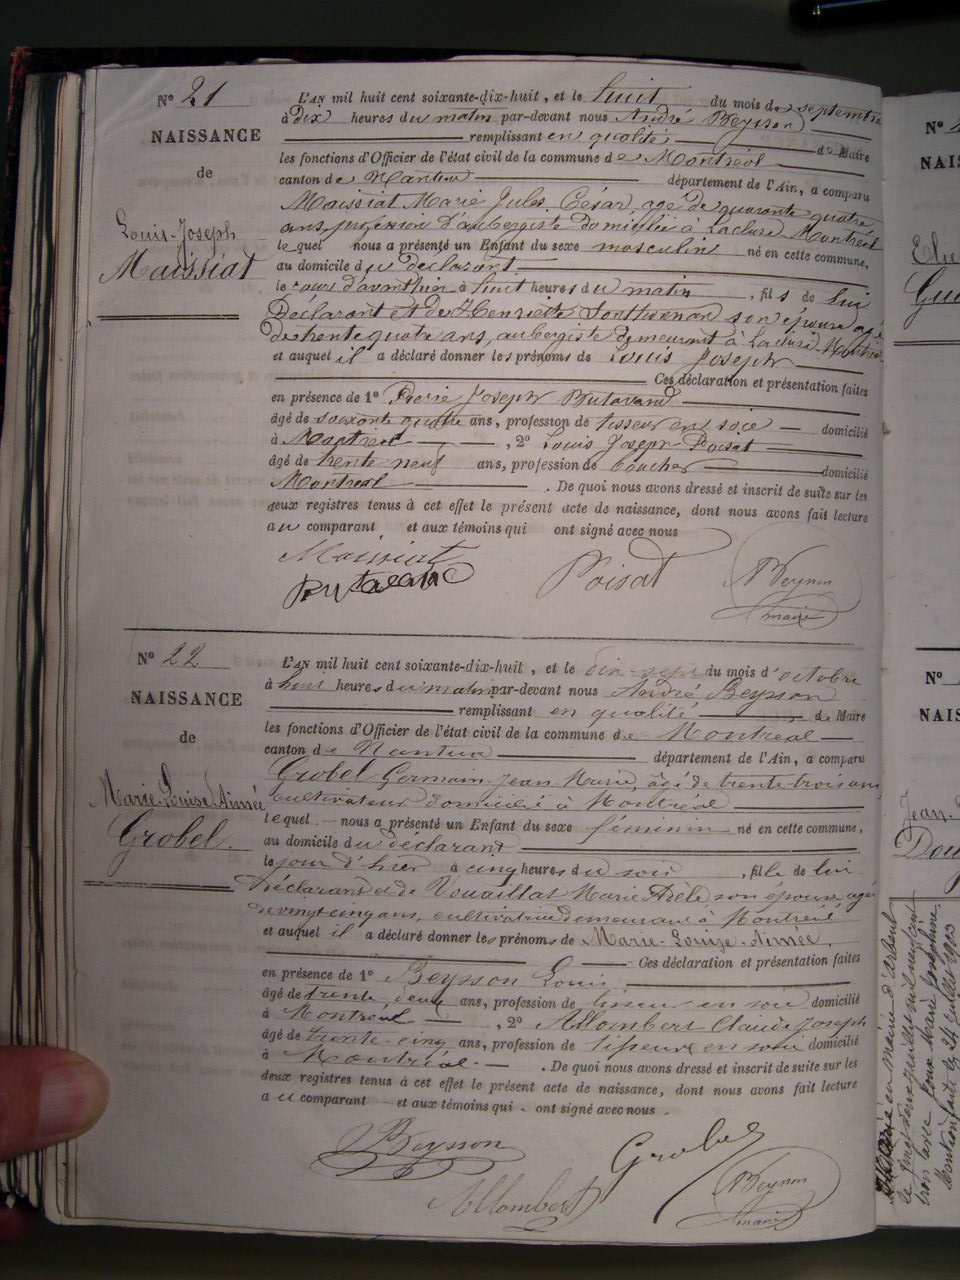 N° 21
NAISSANCE
de
Louis-Joseph
Maissiat
L'AN mil huit cent soixante-dix-huit, et le huit du mois de septembre
à dix heures du matin par-devant nous André Beysson
remplissant en qualité de Maire
les fonctions d'Officier de l'état civil de la commune de Montréal
canton de Nantua département de l'Ain, a comparu
Maissiat Marie Jules César âgé de quarante quatre
ans, profession d'aubergiste domicilié à Lacluse Montréal
lequel nous a présenté un Enfant du sexe masculin né en cette commune,
au domicile du déclarant
le jour d'avanthier à huit heures du matin, fils de lui
Déclarant et de Henriette son épouse agée
de trente quatre ans, aubergiste demeurant à Lacluse Montréal
et auquel il a déclaré donner les prénoms de Louis Joseph
Ces déclaration et présentation faites
en présence de 1° Pierre Joseph Butavand
âgé de soixante quatre ans, profession de tisseur en soie domicilié
à Montréal, 2° Louis Joseph Poisat
âgé de trente neuf ans, profession de boucher domicilié
Montréal. De quoi nous avons dressé et inscrit de suite sur les
deux registres tenus à cet effet le présent acte de naissance, dont nous avons fait lecture
au comparant et aux témoins qui ont signé avec nous
Maissiat
Butavand
Poisat
A Beysson
maire
N° 22
NAISSANCE
de
Marie-Louise-Aimée
Grobel.
L'AN mil huit cent soixante-dix-huit, et le dix-sept du mois d'octobre
à huit heures du matin par-devant nous André Beysson
remplissant en qualité de Maire
les fonctions d'Officier de l'état civil de la commune de Montréal
canton de Nantua département de l'Ain, a comparu
Grobel Germain-Jean-Marie, âgé de trente-trois ans,
cultivateur domicilié à Montréal
lequel nous a présenté un Enfant du sexe féminin né en cette commune,
au domicile du déclarant
le jour d'hier à cinq heures du soir, fille de lui
Déclarant et de Vouaillat Marie Adèle son épouse, agée
de vingt cinq ans, cultivatrice demeurant à Montréal
et auquel il a déclaré donner les prénoms de Marie-Louise-Aimée.
Ces déclaration et présentation faites
en présence de 1° Beysson Louis
âgé de trente deux ans, profession de tisseur en soie domicilié
à Montréal, 2° Allombert Claude Joseph
âgé de trente-cinq ans, profession de tisseur en soie domicilié
à Montréal. De quoi nous avons dressé et inscrit de suite sur les
deux registres tenus à cet effet le présent acte de naissance, dont nous avons fait lecture
au comparant et aux témoins qui ont signé avec nous.
Beysson
Grobel
Allombert
A Beysson
maire
N°
NAIS
N°
NAIS
Jean-